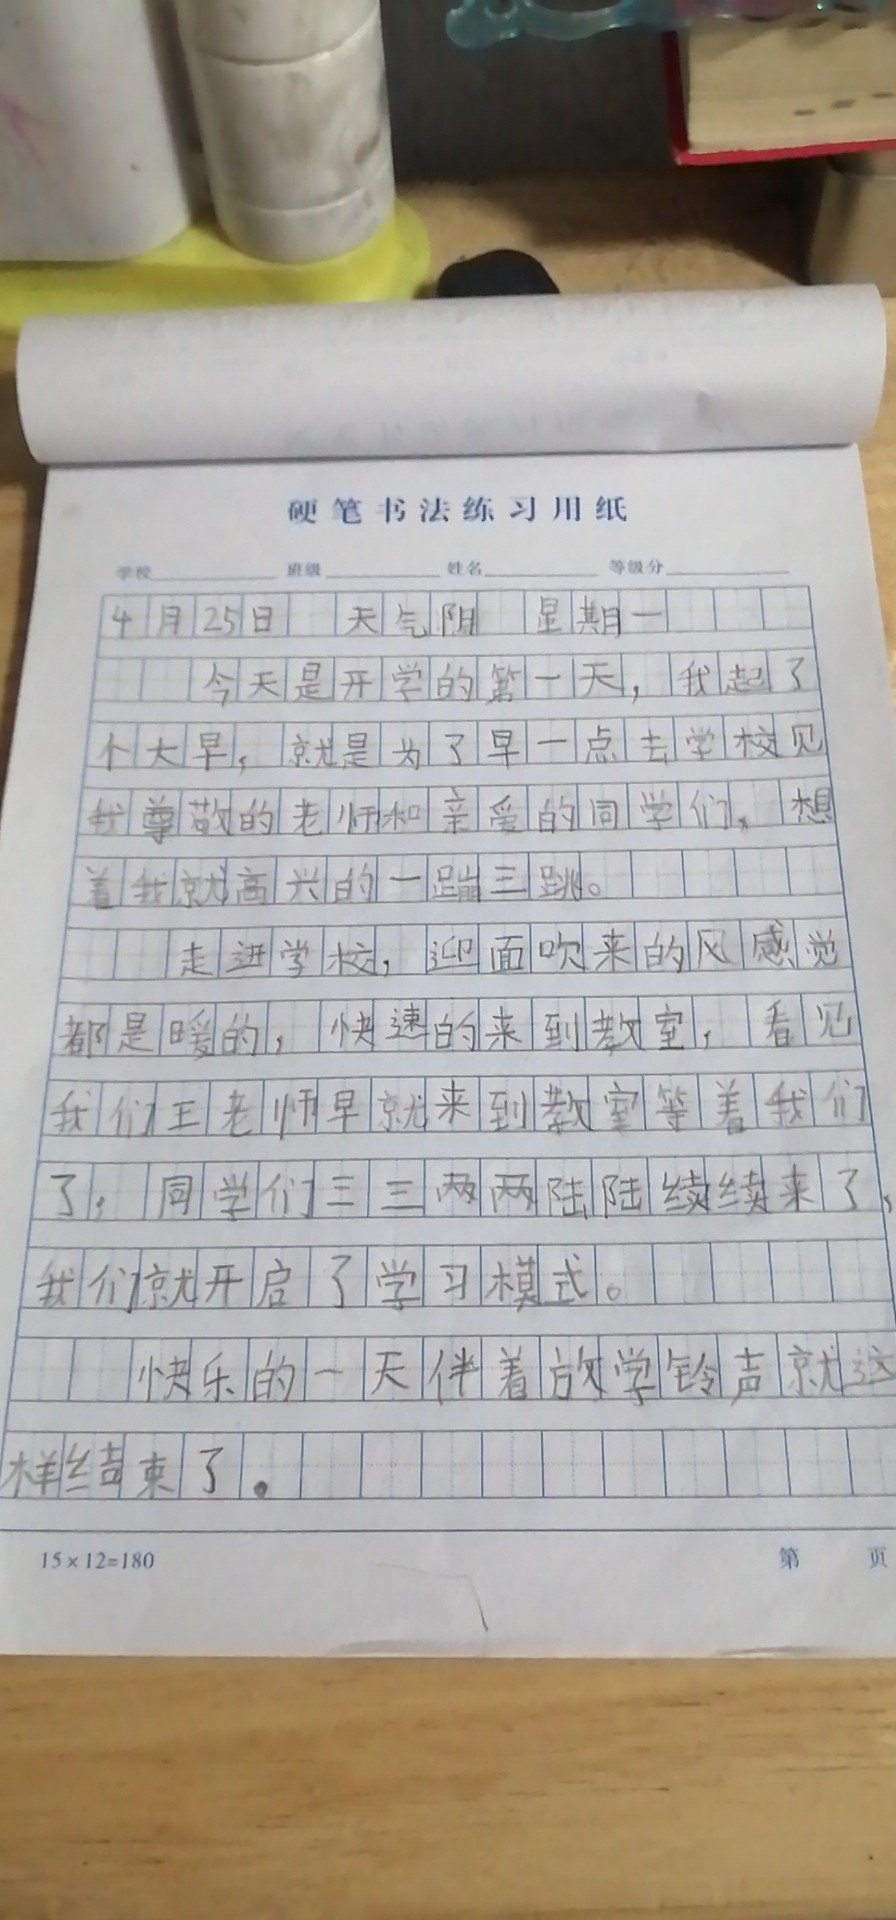 硬笔书法练习用纸
学校 班级 姓名 等级分
4月25日 天气阴 星期一
今天是开学的第一天，我起了
个大早，就是为了早一点去学校见
我尊敬的老师和亲爱的同学们，想
着我就高兴的一蹦三跳。
走进学校，迎面吹来的风感觉
都是暖的，快速的来到教室，看见
我们王老师早就来到教室等着我们
了，同学们三三两两陆陆续续来了，
我们就开启了学习模式。
快乐的一天伴着放学铃声就这
样结束了。
15×12=180
第 页